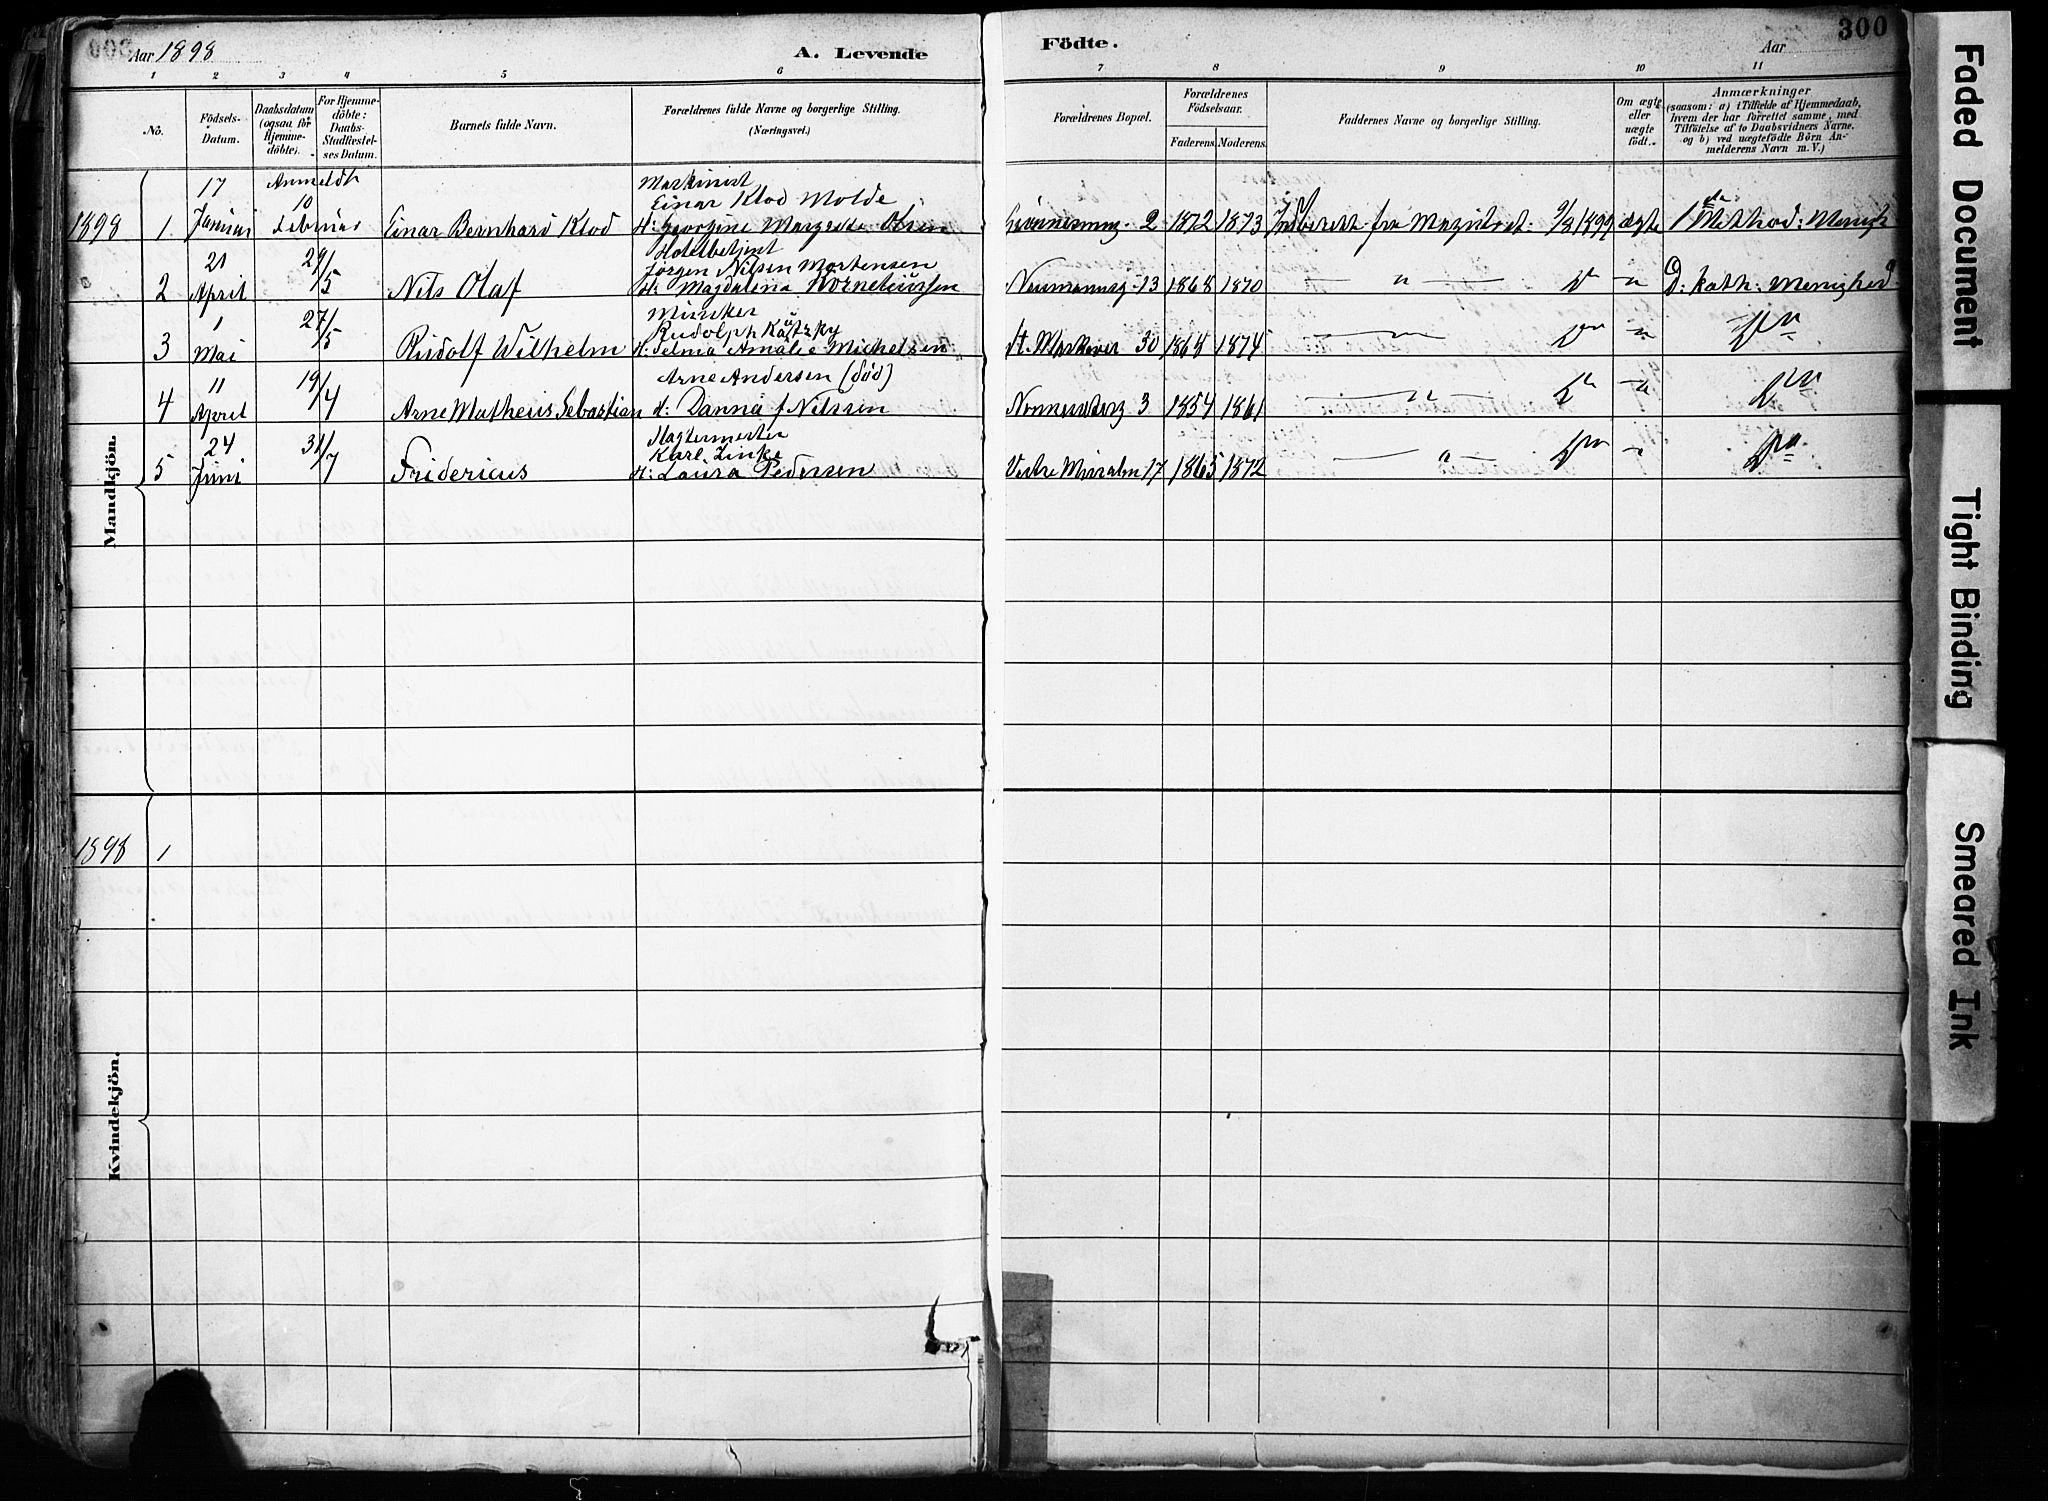 300
Aar 1898
A. Levende
Födte.
Aar
1 2 3 4 5 6 7 8 9 10 11
No.
Födsels-Datum.
Daabsdatum (ogsaa for Hjemme-döbte).
For Hjemme-döbte: Daabs-Stadfæstel-ses Datum.
Barnets fulde Navn.
Forældrenes fulde Navne og borgerlige Stilling.
(Næringsvei.)
Forældrenes Bopæl.
Forældrenes Födselsaar.
Faderens. Moderens.
Faddernes Navne og borgerlige Stilling.
Om ægte eller uægte födt.
Anmærkninger
(saasom: a) i Tilfælde af Hjemmedaab,
hvem der har forrettet samme, med
Tilföielse af to Daabsvidners Navne,
og b) ved uægtefödte Börn An-
melderens Navn m. V.)
Mandkjön.
1898 1 17 Januar Anmeldt 10 Februar Einar Bernhard Klod
Maskinist
Einar Klod Molde
H: Georgine Margrethe Olsen
2 1872 1873 Indberett fra Magistrat 9/3 1899 ægte 1ste Method: Menigh
2 21 April 29/5 Nils Olaf
Hotelbetjent
Jørgen Nilsen Mortensen
H: Magdalena Korneliussen
Neumannsg 13 1868 1870 — " — D " D: kath: Menighed
3 1 Mai 27/5 Rudolf Wilhelm
Musiker
Rudolph Kautzky
H: Selma Amalie Michelsen
St. Markevei 30 1868 1874 — " — D" " D"
4 11 April 19/4 Arne Matheus Sebastian
Arne Andersen (död)
H: Danna f Nilssen
Nonneseterg 3 1854 1861 — " — D" " D"
5 24 Juni 31/7 Fridericus
Slagtermester
Karl Zinke
H: Laura Pedersen
Vestre Muralm 17 1865 1872 — " — D" " D"
Kvindekjön.
1898 1
Faded Document
Tight Binding
Smeared Ink